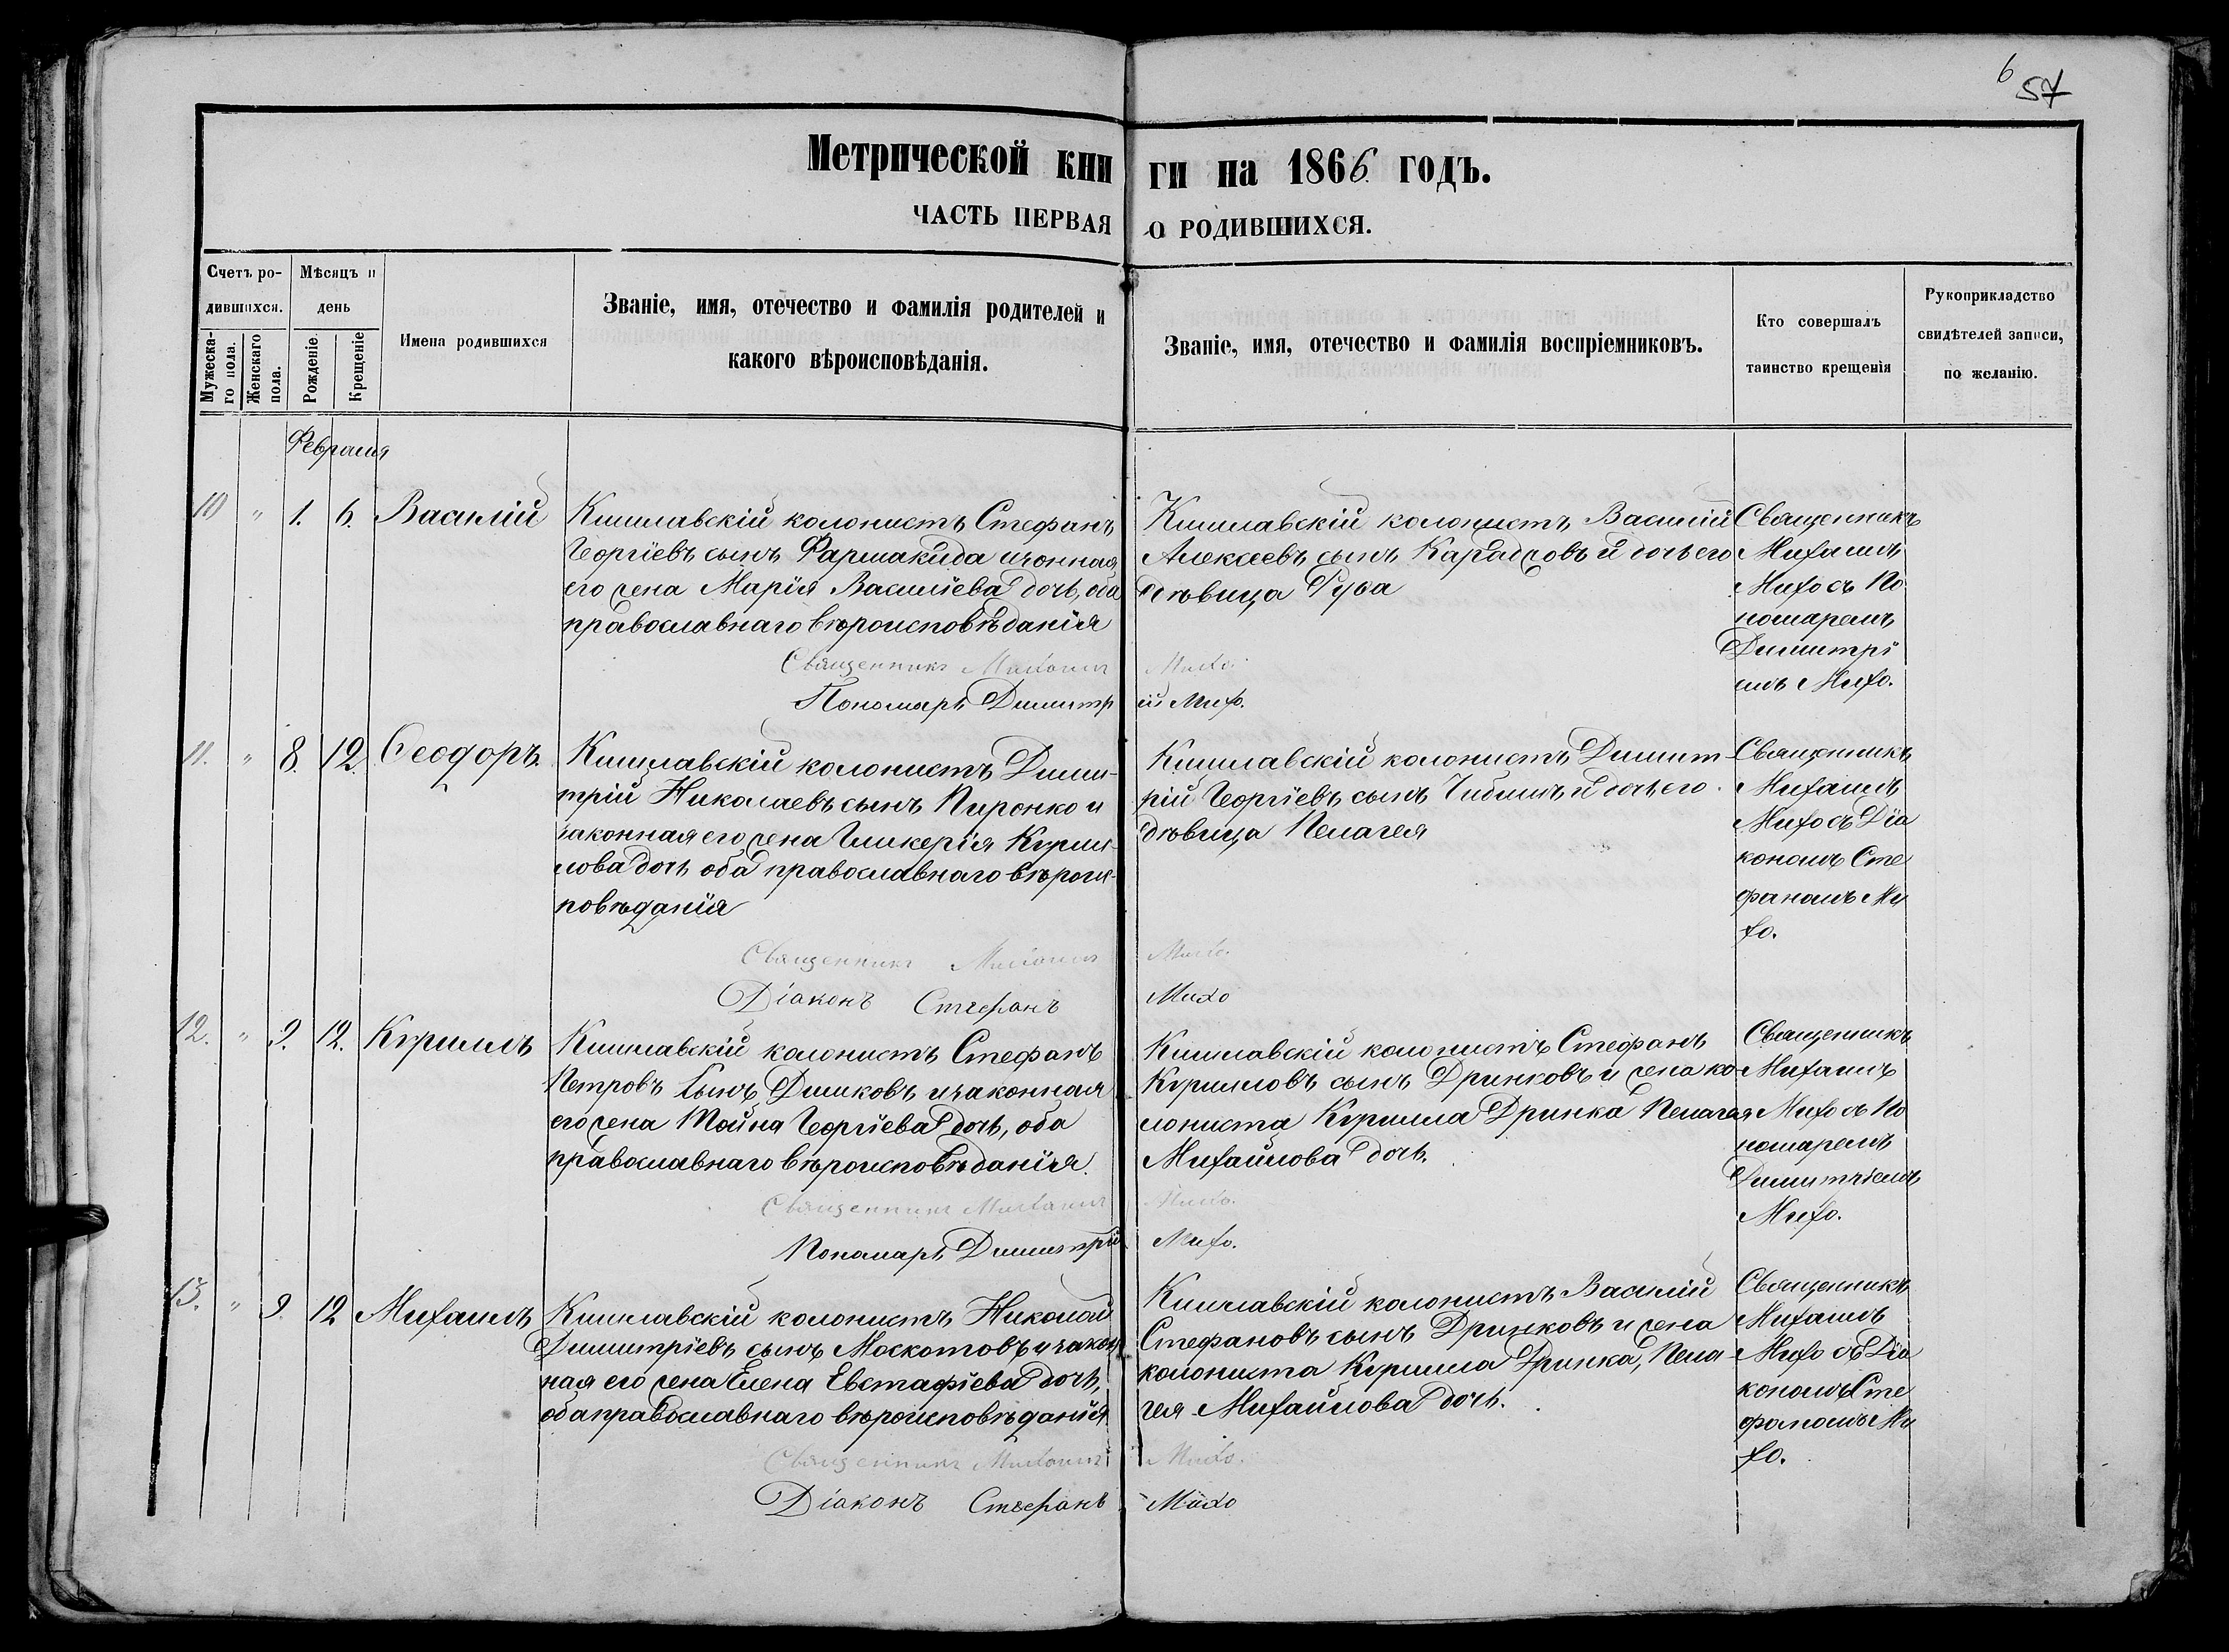 6
57
Метрической кни ги на 1866 годъ.
ЧАСТЬ ПЕРВАЯ О РОДИВШИХСЯ.
Счетъ ро-
дившихся.
Мужеска-
го пола.
Женскаго
пола.
Мѣсяцъ и
день
Рожденіе.
Крещеніе
Имена родившихся
Званіе, имя, отечество и фамилія родителей и
какого вѣроисповѣданія.
Званіе, имя, отечество и фамилія воспріемниковъ.
Кто совершалъ
таинство крещенія
Рукоприкладство
свидѣтелей записи,
по желанію.
Февраля
10 " 1. 6. Василій
Кишлавскій колонистъ Стефанъ
Георгіевъ сынъ Фармакида и законная
его жена Марія Василіева дочь, оба
православнаго вѣроисповѣданія
Кишлавскій колонистъ Василій
Алексеевъ сынъ и дочь его
дѣвица
Священникъ
Михаилъ
Михо съ По
номаремъ
Димитрі
емъ Михо.
Священникъ Михаилъ Михо.
Пономарь Димитр ій Михо.
11. " 8. 12. Ѳеодоръ.
Кишлавскій колонистъ Дими-
трій Николаевъ сынъ Пиронко и
законная его жена Гликерія Кѵрил-
лова дочь оба православнаго вѣроис-
повѣданія
Кишлавскій колонистъ Димит-
рій Георгіевъ сынъ и дочь его
дѣвица Пелагея
Священникъ
Михаилъ
Михо съ Діа
кономъ Сте
фаномъ Ми
хо.
Священникъ Михаилъ Михо.
Діаконъ Стефанъ Михо
12. " 9. 12. Кѵриллъ
Кишлавскій колонистъ Стефанъ
Петровъ сынъ Димковъ и законная
его жена Тойна Георгіева дочь, оба
православнаго вѣроисповѣданія.
Кишлавскій колонистъ Стефанъ
Кѵрилловъ сынъ Дринковъ и жена ко
лониста Кѵрилла Дринка Пелагея
Михайлова дочь.
Священникъ
Михаилъ
Михо съ По
номаремъ
Димитріемъ
Михо.
Священникъ Михаилъ Михо.
Пономарь Димитрій Михо.
13. " 9. 12 Михаилъ
Кишлавскій колонистъ Николай
Димитріевъ сынъ Москотовъ и закон
ная его жена Елена Евстафіева дочь,
оба православнаго вѣроисповѣданія
Кишлавскій колонистъ Василій
Стефановъ сынъ Дринковъ и жена
колониста Кѵрилла Дринка, Пела
гея Михайлова дочь.
Священникъ
Михаилъ
Михо съ Діа
кономъ Сте
фаномъ Ми
хо.
Священникъ Михаилъ Михо.
Діаконъ Стефанъ Михо